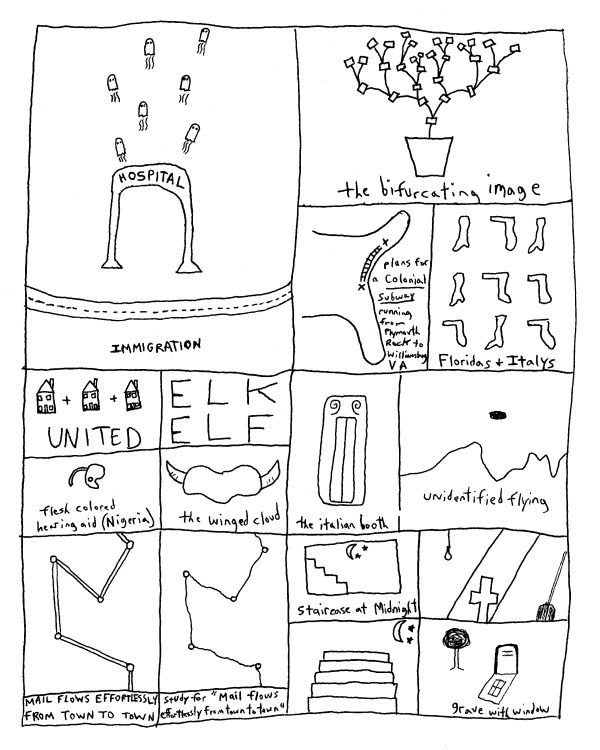 HOSPITAL
IMMIGRATION
the bifurcating image
plans for
a Colonial
Subway
running
from
Plymouth
Rock to
Williamsburg
VA
Floridas + Italys
+ +
UNITED
ELK
ELF
flesh colored
hearing aid (Nigeria)
the winged cloud
the italian booth
unidentified flying
MAIL FLOWS EFFORTLESSLY
FROM TOWN TO TOWN
Study for "Mail flows
effortlessly from town to town"
Staircase at Midnight
grave with window